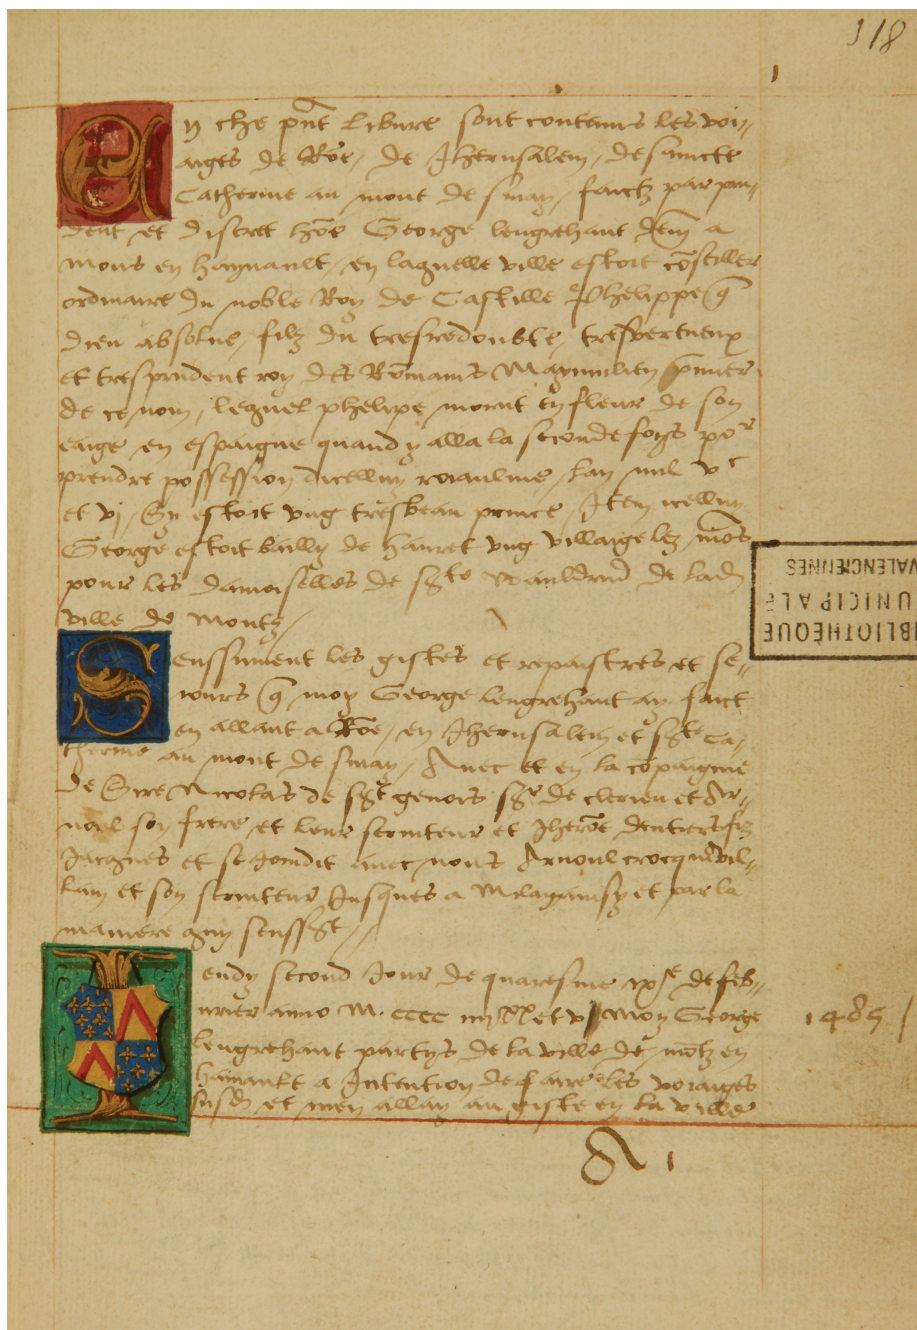 118
1
En che pnt Libvre sont contenus les voi=
aiges de Rõe, de Jherusalem, de saincte
Catherine au mont de sinay, faictz par pru=
dent et discret hõe George Lengrehant dem a
Mons en haynault, en laquelle ville estoit cõseiller
ordinaire du noble Roy de Castille Phelippe q
dieu absolve, filz du tresredoubte, tresvertueux
et tresprudent roy des Rõmains Maximilien prmier
de ce nom, lequel phelipe morut en fleur de son
eaige en espaigne quand y alla la seconde foys por
prendre possession dicelluy roiaulme, lan mil vc
et vj, Sy estoit ung tresbeau prince, Item icelluy
George estoit bailly de havret ung villaige lez mõs
pour les damoiselles de ste Wauldrud de lad
ville de Montz /
BIBLIOTHÈQUE
MUNICIPALE
VALENCIENNES
Senssuivent les gistes et repaistres et se=
iours q moy George Lengrehant ay faict
en allant a Rõe, en Jherusalem et ste Ca=
therine au mont de sinay, Avec et en la cõpaignie
de Sire Nicolas de st genois sr de clerieu et Ar=
noul son frere et leur serviteur et Jherõe dentiers filz
Jacques et se joindit avec nous Arnoul crocquevil=
lain et son serviteur Jusques a et par la
maniere quy senssyt //
endy second jour de quaresme ixe de feb=
vrier anno M. cccc iiijxx et v Moy George
Lengrehant partys de la ville de mõtz en
hainault a Intention de faire les voiaiges
susd et men allay au giste en la ville
1485 /
A 1